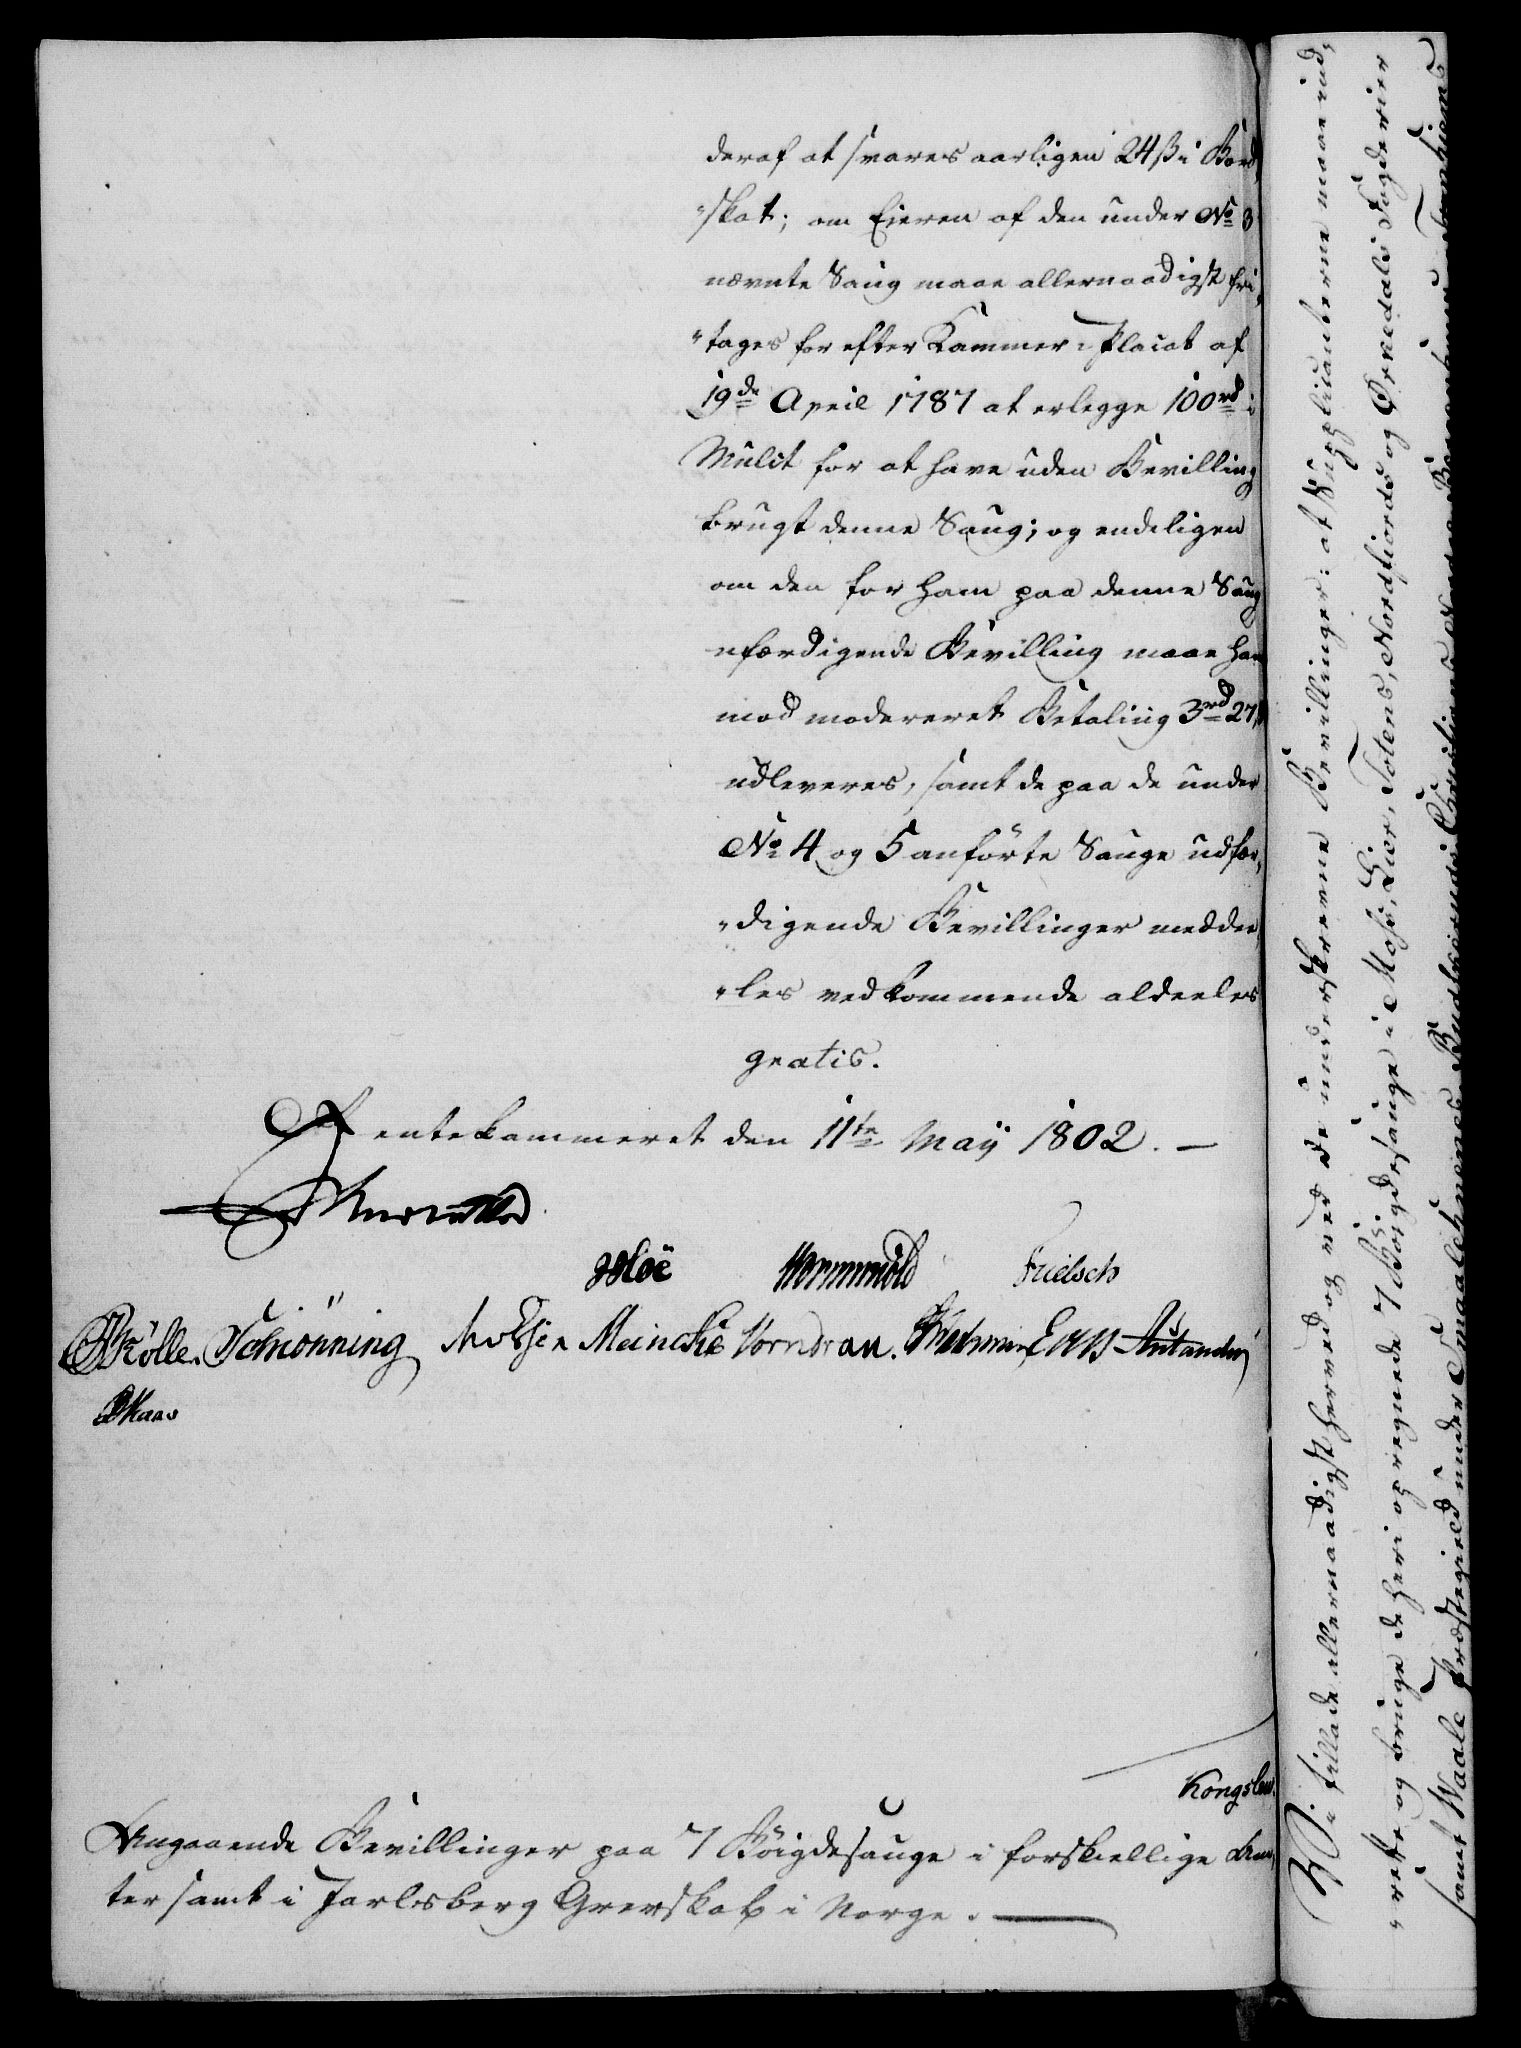 deraf at svares aarligen 24 ß i Bord,
"skat; om Eieren af den under No 3
nævnte Saug maae allernaadigst fri,
"tages for efter Kammer-Placat af
19de April 1787 at erlegge 100 rd i
Mulct for at have uden Bevilling
brugt denne Saug; og endeligen
om den for ham paa denne Saug
færdigende Bevilling maae ham
mod modereret Betaling 3 rd 27 ß
udleveres, samt de paa de under
No 4 og 5 anförte Sauge udfær,
"digende Bevillinger meddee,
"les vedkommende aldeeles
gratis.
Rentekammeret den 11te Maÿ 1802. —
Hoë Wormskiold Frielsch
Schiönning Meincke Vorndran.
Kongslew.
Angaaende Bevillinger paa 7 Böigdesauge i forskiellige Am,
ter samt i Jarlsberg Grevskab i Norge. —
Vi tillade allernaadigst herved og ved de underskrevne Bevillinger: at Supplicanterne maae ind,
"rette og bruge de heri opregnede 7 Böigdesauge i Moss, Lier, Totens, Nordfiords og Örkedals Fogderier
samt Waale Præstegield under Smaalehnenes, Budskeruds, Christians, Nordre Bergenhuus, Tronhiems